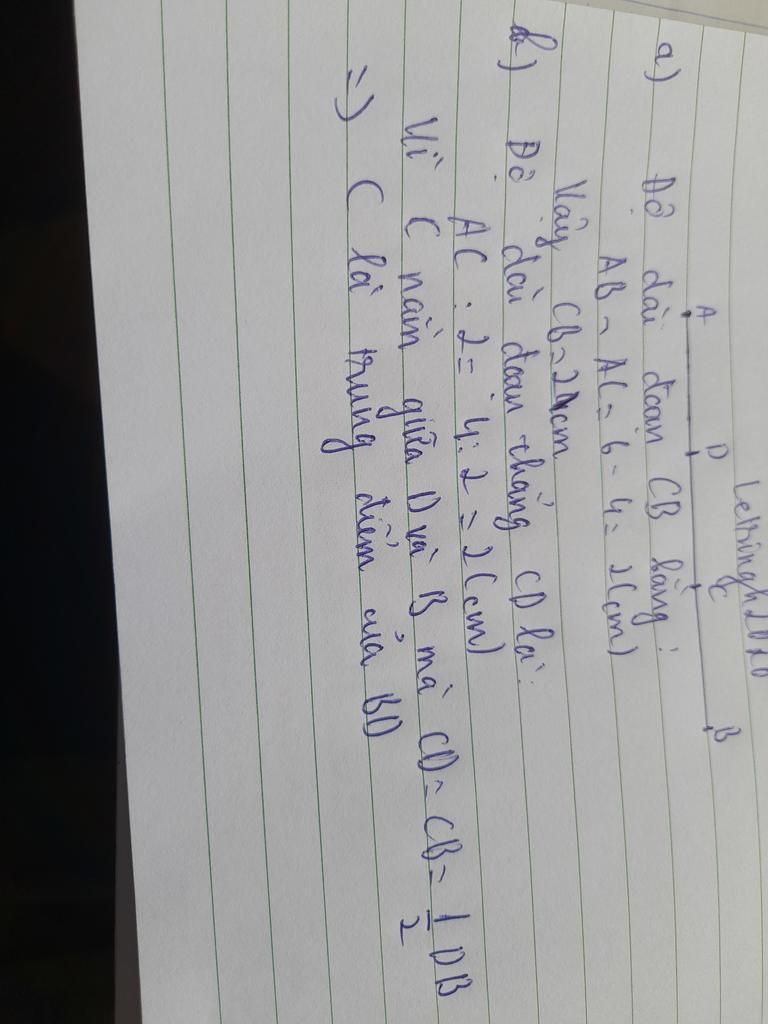 A D C B
a) Độ dài đoạn CB bằng:
AB - AC = 6 - 4 = 2(cm)
Vậy CB = 2cm
b) Độ dài đoạn thẳng CD là:
AC : 2 = 4 : 2 = 2(cm)
Vì C nằn giữa D và B mà CD = CB = 1/2 DB
=) C là trung điểm của BD